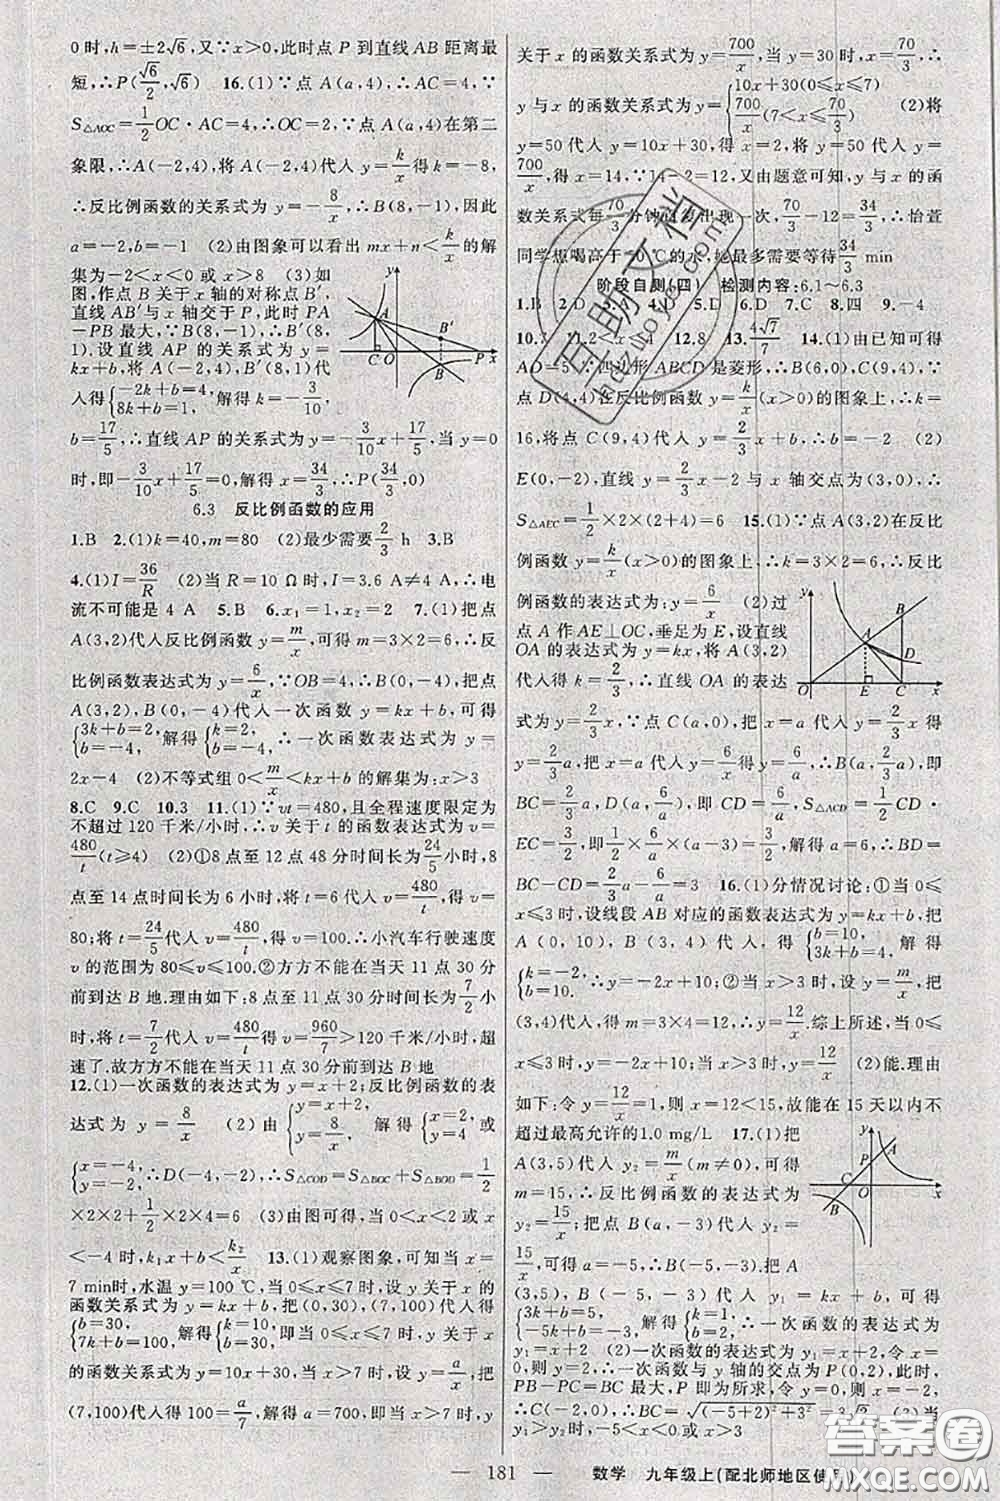 0时,h=±2√6,又∵x>0,此时点 P 到直线 AB 距离最
短,∴P(√6/2,√6) 16.(1)∵点 A(a,4),∴AC=4,∵
S△AOC=1/2 OC·AC=4,∴OC=2,∵点 A(a,4)在第二
象限,∴A(-2,4),将 A(-2,4)代入 y=k/x 得 k=-8,
∴反比例函数的关系式为 y=-8/x,∴B(8,-1),因此
a=-2,b=-1 (2)由图象可以看出 mx+n<k/x 的解
集为-2<x<0 或 x>8 (3)如
图,作点 B 关于 x 轴的对称点 B′,
直线 AB′与 x 轴交于 P,此时 PA
-PB 最大,∵B(8,-1),∴B′(8,
1).设直线 AP 的关系式为 y=
kx+b,将 A(-2,4),B′(8,1)代
入得{-2k+b=4, 8k+b=1, 解得 k=-3/10,
b=17/5,∴直线 AP 的关系式为 y=-3/10x+17/5,当 y=0
时,即-3/10x+17/5=0,解得 x=34/3,∴P(34/3,0)
6.3 反比例函数的应用
1.B 2.(1)k=40,m=80 (2)最少需要 2/3 h 3.B
4.(1)I=36/R (2)当 R=10 Ω时,I=3.6 A≠4 A,∴电
流不可能是 4 A 5.B 6.x₁=1,x₂=2 7.(1)把点
A(3,2)代入反比例函数 y=m/x,可得 m=3×2=6,∴反
比例函数表达式为 y=6/x,∵OB=4,∴B(0,-4),把点
A(3,2),B(0,-4)代入一次函数 y=kx+b,可得
{3k+b=2, b=-4, 解得{k=2, b=-4, ∴一次函数表达式为 y=
2x-4 (2)不等式组 0<m/x<kx+b 的解集为:x>3
8.C 9.C 10.3 11.(1)∵vt=480,且全程速度限定为
不超过 120 千米/小时,∴v 关于 t 的函数表达式为 v=
480/t(t≥4) (2)①8 点至 12 点 48 分时间长为 24/5 小时,8
点至 14 点时间长为 6 小时,将 t=6 代入 v=480/t 得 v=
80;将 t=24/5 代入 v=480/t 得 v=100.∴小汽车行驶速度
v 的范围为 80≤v≤100.②方方不能在当天 11 点 30 分
前到达 B 地.理由如下:8 点至 11 点 30 分时间长为 7/2 小
时,将 t=7/2 代入 v=480/t 得 v=960/7>120 千米/小时,超
速了.故方方不能在当天 11 点 30 分前到达 B 地
12.(1)一次函数的表达式为 y=x+2;反比例函数的表
达式为 y=8/x (2)由{y=x+2, y=8/x, 解得{x=2, y=4 或
{x=-4, y=-2, ∴D(-4,-2),∴S△COD=S△BOC+S△BOD=1/2
×2×2+1/2×2×4=6 (3)由图可得,当 0<x<2 或 x
<-4 时,k₁x+b<k₂/x 13.(1)观察图象,可知当 x=
7 min时,水温 y=100 ℃,当 0≤x≤7 时,设 y 关于 x 的
函数关系式为 y=kx+b,把(0,30),(7,100)代入得
{b=30, 7k+b=100, 解得{k=10, b=30, 即当 0≤x≤7 时,y 关于 x
的函数关系式为 y=10x+30,当 x>7 时,设 y=a/x,把
(7,100)代入得 100=a/7,解得 a=700,即当 x>7 时,y
关于 x 的函数关系式为 y=700/x,当 y=30 时,x=70/3,∴
y 与 x 的函数关系式为 y={10x+30(0≤x≤7) 700/x(7<x≤70/3) (2)将
y=50 代入 y=10x+30,得 x=2,将 y=50 代入 y=
700/x,得 x=14,∵14-2=12,又由题意可知,y 与 x 的函
数关系式每70/3分钟重复出现一次,70/3-12=34/3,∴怡萱
同学想喝高于50 ℃的水,她最多需要等待34/3 min
阶段自测(四) 检测内容:6.1~6.3
1.B 2.D 4.A 5.D 6.D 7.C 8.四 9.-4
12.8 13.4√7/7 14.(1)由已知可得
AD=5,∵四边形 ABCD 是菱形,∴B(6,0),C(9,4),∵
点 D(4,4)在反比例函数 y=k/x 的图象上,∴k=
16,将点 C(9,4)代入 y=2/3x+b,∴b=-2 (2)
E(0,-2),直线 y=2/3x-2 与 x 轴交点为(3,0),∴
S△AEC=1/2×2×(2+4)=6 15.(1)∵点 A(3,2)在反比
例函数 y=k/x(x>0)的图象上,∴k=3×2=6,∴反比
例函数的表达式为:y=6/x (2)过
点 A 作 AE⊥OC,垂足为 E,设直线
OA 的表达式为 y=kx,将 A(3,2)
代入得 k=2/3,∴直线 OA 的表达
式为 y=2/3x,∵点 C(a,0),把 x=a 代入 y=2/3x 得
y=2/3a,把 x=a 代入 y=6/x,得 y=6/a,∴B(a,2/3a),即
BC=2/3a,D(a,6/a),即 CD=6/a,∵S△ACD=1/2CD·
EC=3/2,即1/2×6/a×(a-3)=3/2,解得 a=6,∴BD=
BC-CD=2/3a-6/a=3 16.(1)分情况讨论:①当 0≤
x≤3 时,设线段 AB 对应的函数表达式为 y=kx+b,把
A(0,10),B(3,4)代入,得{b=10, 3k+b=4, 解得
{k=-2, b=10. ∴y=-2x+10;②当 x>3 时,设 y=m/x,把
(3,4)代入,得 m=3×4=12,∴y=12/x.综上所述,当 0≤
x≤3 时,y=-2x+10;当 x>3 时,y=12/x (2)能.理由
如下:令 y=12/x=1,则 x=12<15,故能在 15 天以内不
超过最高允许的1.0 mg/L 17.(1)把
A(3,5)代入 y₂=m/x(m≠0),可得
m=15,∴反比例函数的表达式为
y₂=15/x;把点 B(a,-3)代入 y₂=
15/x,可得 a=-5,∴B(-5,-3).把 A
(3,5),B(-5,-3)代入 y₁=kx+b,可得
{3k+b=5, -5k+b=-3, 解得{k=1, b=2, ∴一次函数的表达式为
y₁=x+2 (2)一次函数的表达式为y₁=x+2,令 x=
0,则 y=2,∴一次函数与 y 轴的交点为 P(0,2),此时,
PB-PC=BC 最大,P 即为所求,令 y=0,则 x=-2,
∴C(-2,0),∴BC=√((-5+2)²+3²)=3√2 (3)当
y₁>y₂ 时,-5<x<0 或 x>3
181 数学 九年级上(配北师地区使用)
答案圈
MXQE.COM